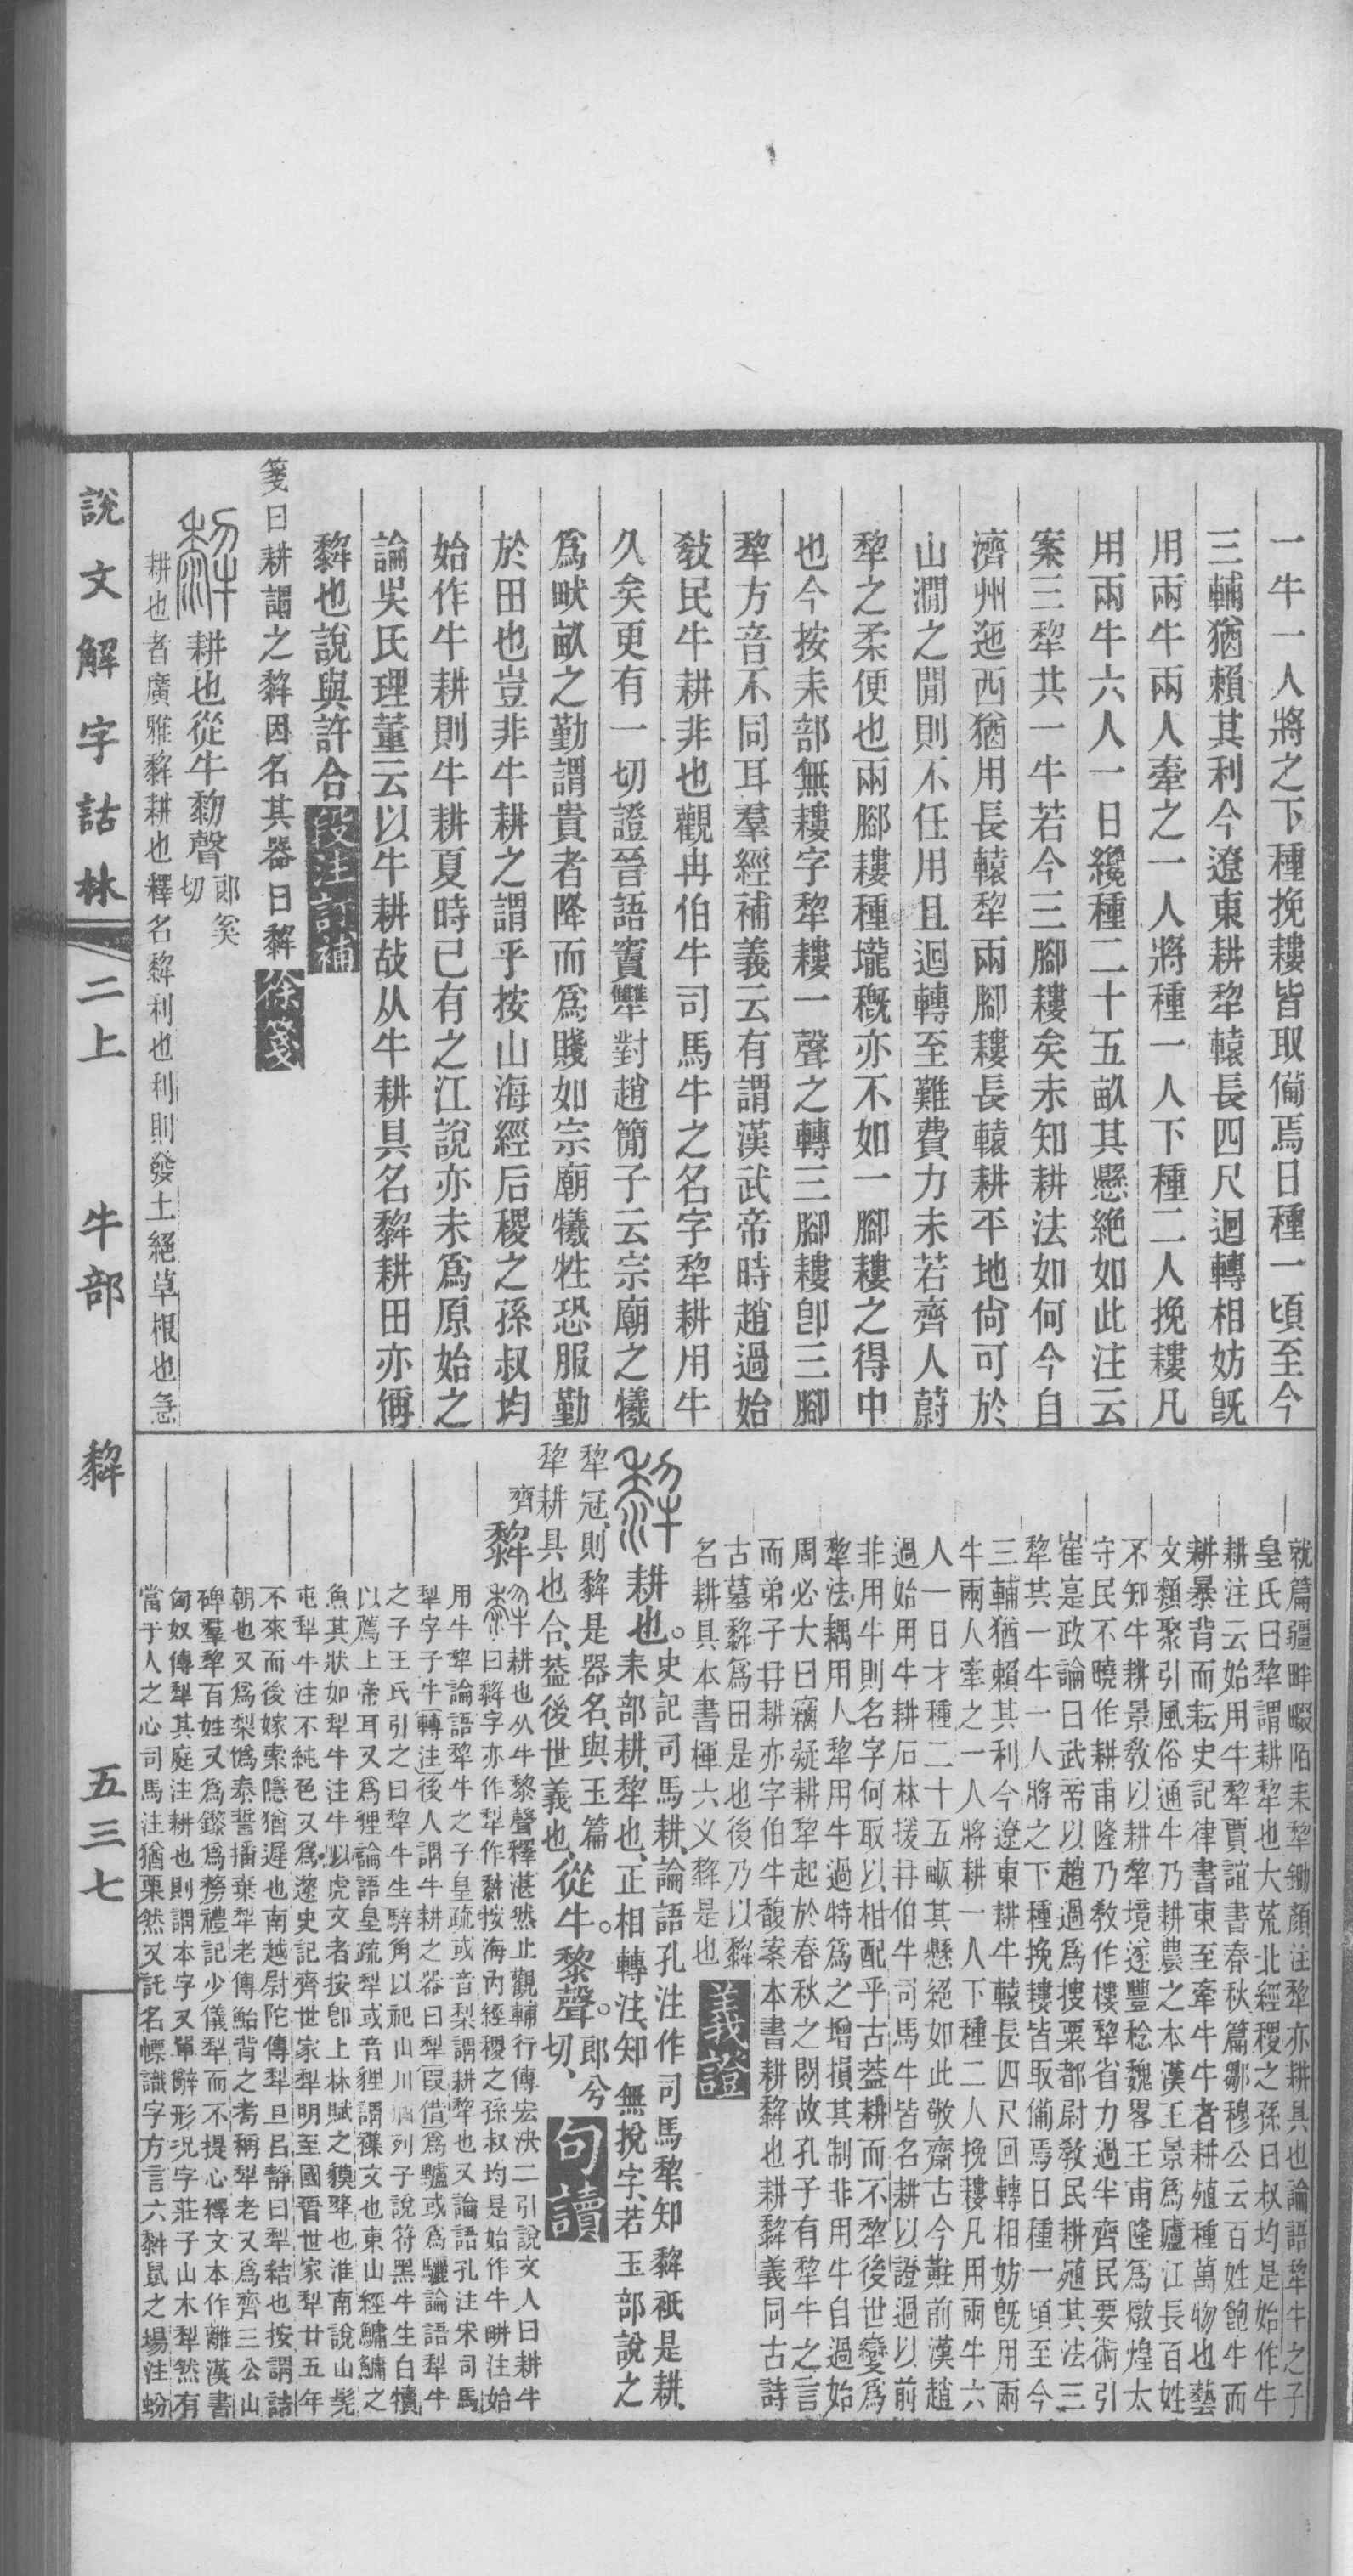 一牛一人將之下種挽耬皆取備焉日種一頃至今
三輔猶賴其利今遼東耕犂轅長四尺迴轉相妨旣
用兩牛兩人牽之一人將種一人下種二人挽耬凡
用兩牛六人一日纔種二十五畝其懸絕如此注云
案三犂共一牛若今三腳耬矣未知耕法如何今自
濟州迤西猶用長轅犂兩腳耬長轅耕平地尙可於
山澗之閒則不任用且迴轉至難費力未若齊人蔚
犂之柔便也兩腳耬種壠穊亦不如一腳耬之得中
也今按耒部無耬字犂耬一聲之轉三腳耬卽三腳
犂方音不同耳羣經補義云有謂漢武帝時趙過始
敎民牛耕非也觀冉伯牛司馬牛之名字犂耕用牛
久矣更有一切證晉語竇犨對趙簡子云宗廟之犧
爲畎畝之勤謂貴者降而爲賤如宗廟犧牲恐服勤
於田也豈非牛耕之謂乎按山海經后稷之孫叔均
始作牛耕則牛耕夏時已有之江說亦未爲原始之
論吳氏理董云以牛耕故从牛耕具名犂耕田亦偁
犂也說與許合段注訂補
箋曰耕謂之犂因名其器曰犂徐箋
耕也從牛黎聲郎奚切
耕也者廣雅犂耕也釋名犂利也利則發土絕草根也急
就篇疆畔畷陌耒犂鋤顏注犂亦耕具也論語犂牛之子
皇氏曰犂謂耕犂也大荒北經稷之孫曰叔均是始作牛
耕注云始用牛犂賈誼書春秋篇鄒穆公云百姓飽牛而
耕暴背而耘史記律書東至牽牛牛者耕殖種萬物也藝
文類聚引風俗通牛乃耕農之本漢王景爲廬江長百姓
不知牛耕景敎以耕犂境遂豐稔魏畧王甫隆爲燉煌太
守民不曉作耕甫隆乃敎作樓犂省力過半齊民要術引
崔寔政論曰武帝以趙過爲搜粟都尉敎民耕殖其法三
犂共一牛一人將之下種挽耬皆取備焉日種一頃至今
三輔猶賴其利今遼東耕牛轅長四尺回轉相妨旣用兩
牛兩人牽之一人將耕一人下種二人挽耬凡用兩牛六
人一日才種二十五畝其懸絕如此敬齋古今黈前漢趙
過始用牛耕石林援冉伯牛司馬牛皆名耕以證過以前
非用牛則名字何取以相配乎古蓋耕而不犂後世變爲
犂法耦用人犂用牛過特爲之增損其制非用牛自過始
周必大曰竊疑耕犂起於春秋之閒故孔子有犂牛之言
而弟子冉耕亦字伯牛馥案本書耕犂也耕犂義同古詩
古墓犂爲田是也後乃以犂
名耕具本書楎六叉犂是也義證
耕也。史記司馬耕、論語孔注作司馬犂、知犂祇是耕、
耒部耕、犂也、正相轉注、知無挩字、若玉部說之
犂冠、則犂是器名、與玉篇
犂耕具也合、葢後世義也、從牛。黎聲。郎兮切、句讀
齊犂耕也从牛黎聲釋湛然止觀輔行傳宏決二引說文人曰耕牛
曰犂字亦作犁作犂按海內經稷之孫叔均是始作牛畊注始
用牛犂論語犂牛之子皇疏或音梨謂耕犂也又論語孔注宋司馬
犁字子牛轉注後人謂牛耕之器曰犁叚借爲驢或爲驪論語犁牛
之子王氏引之曰犂牛生騂角以祀山川列子說符黑牛生白犢
以薦上帝耳又爲貍論語皇疏犁或音貍謂襍文也東山經鱅鱅之
魚其狀如犁牛注牛似虎文者按卽上林賦之貘犛也淮南說山髡
屯犁牛注不純色又爲邌史記齊世家犁明至國晉世家犁廿五年
不來而後嫁索隱猶遲也南越尉佗傳犁旦呂靜曰犁結也按謂詰
朝也又爲梨僞泰誓播棄犁老傳鮐背之耇稱犁老又爲齊三公山
碑羣犂百姓又爲鑗爲剺禮記少儀犁而不提心釋文本作離漢書
匈奴傳犁其庭注耕也則謂本字又單辭形況字莊子山木犁然有
當于人之心司馬注猶栗然又託名幖識字方言六犂鼠之場注蚡
說文解字詁林 二上 牛部 犂 五三七